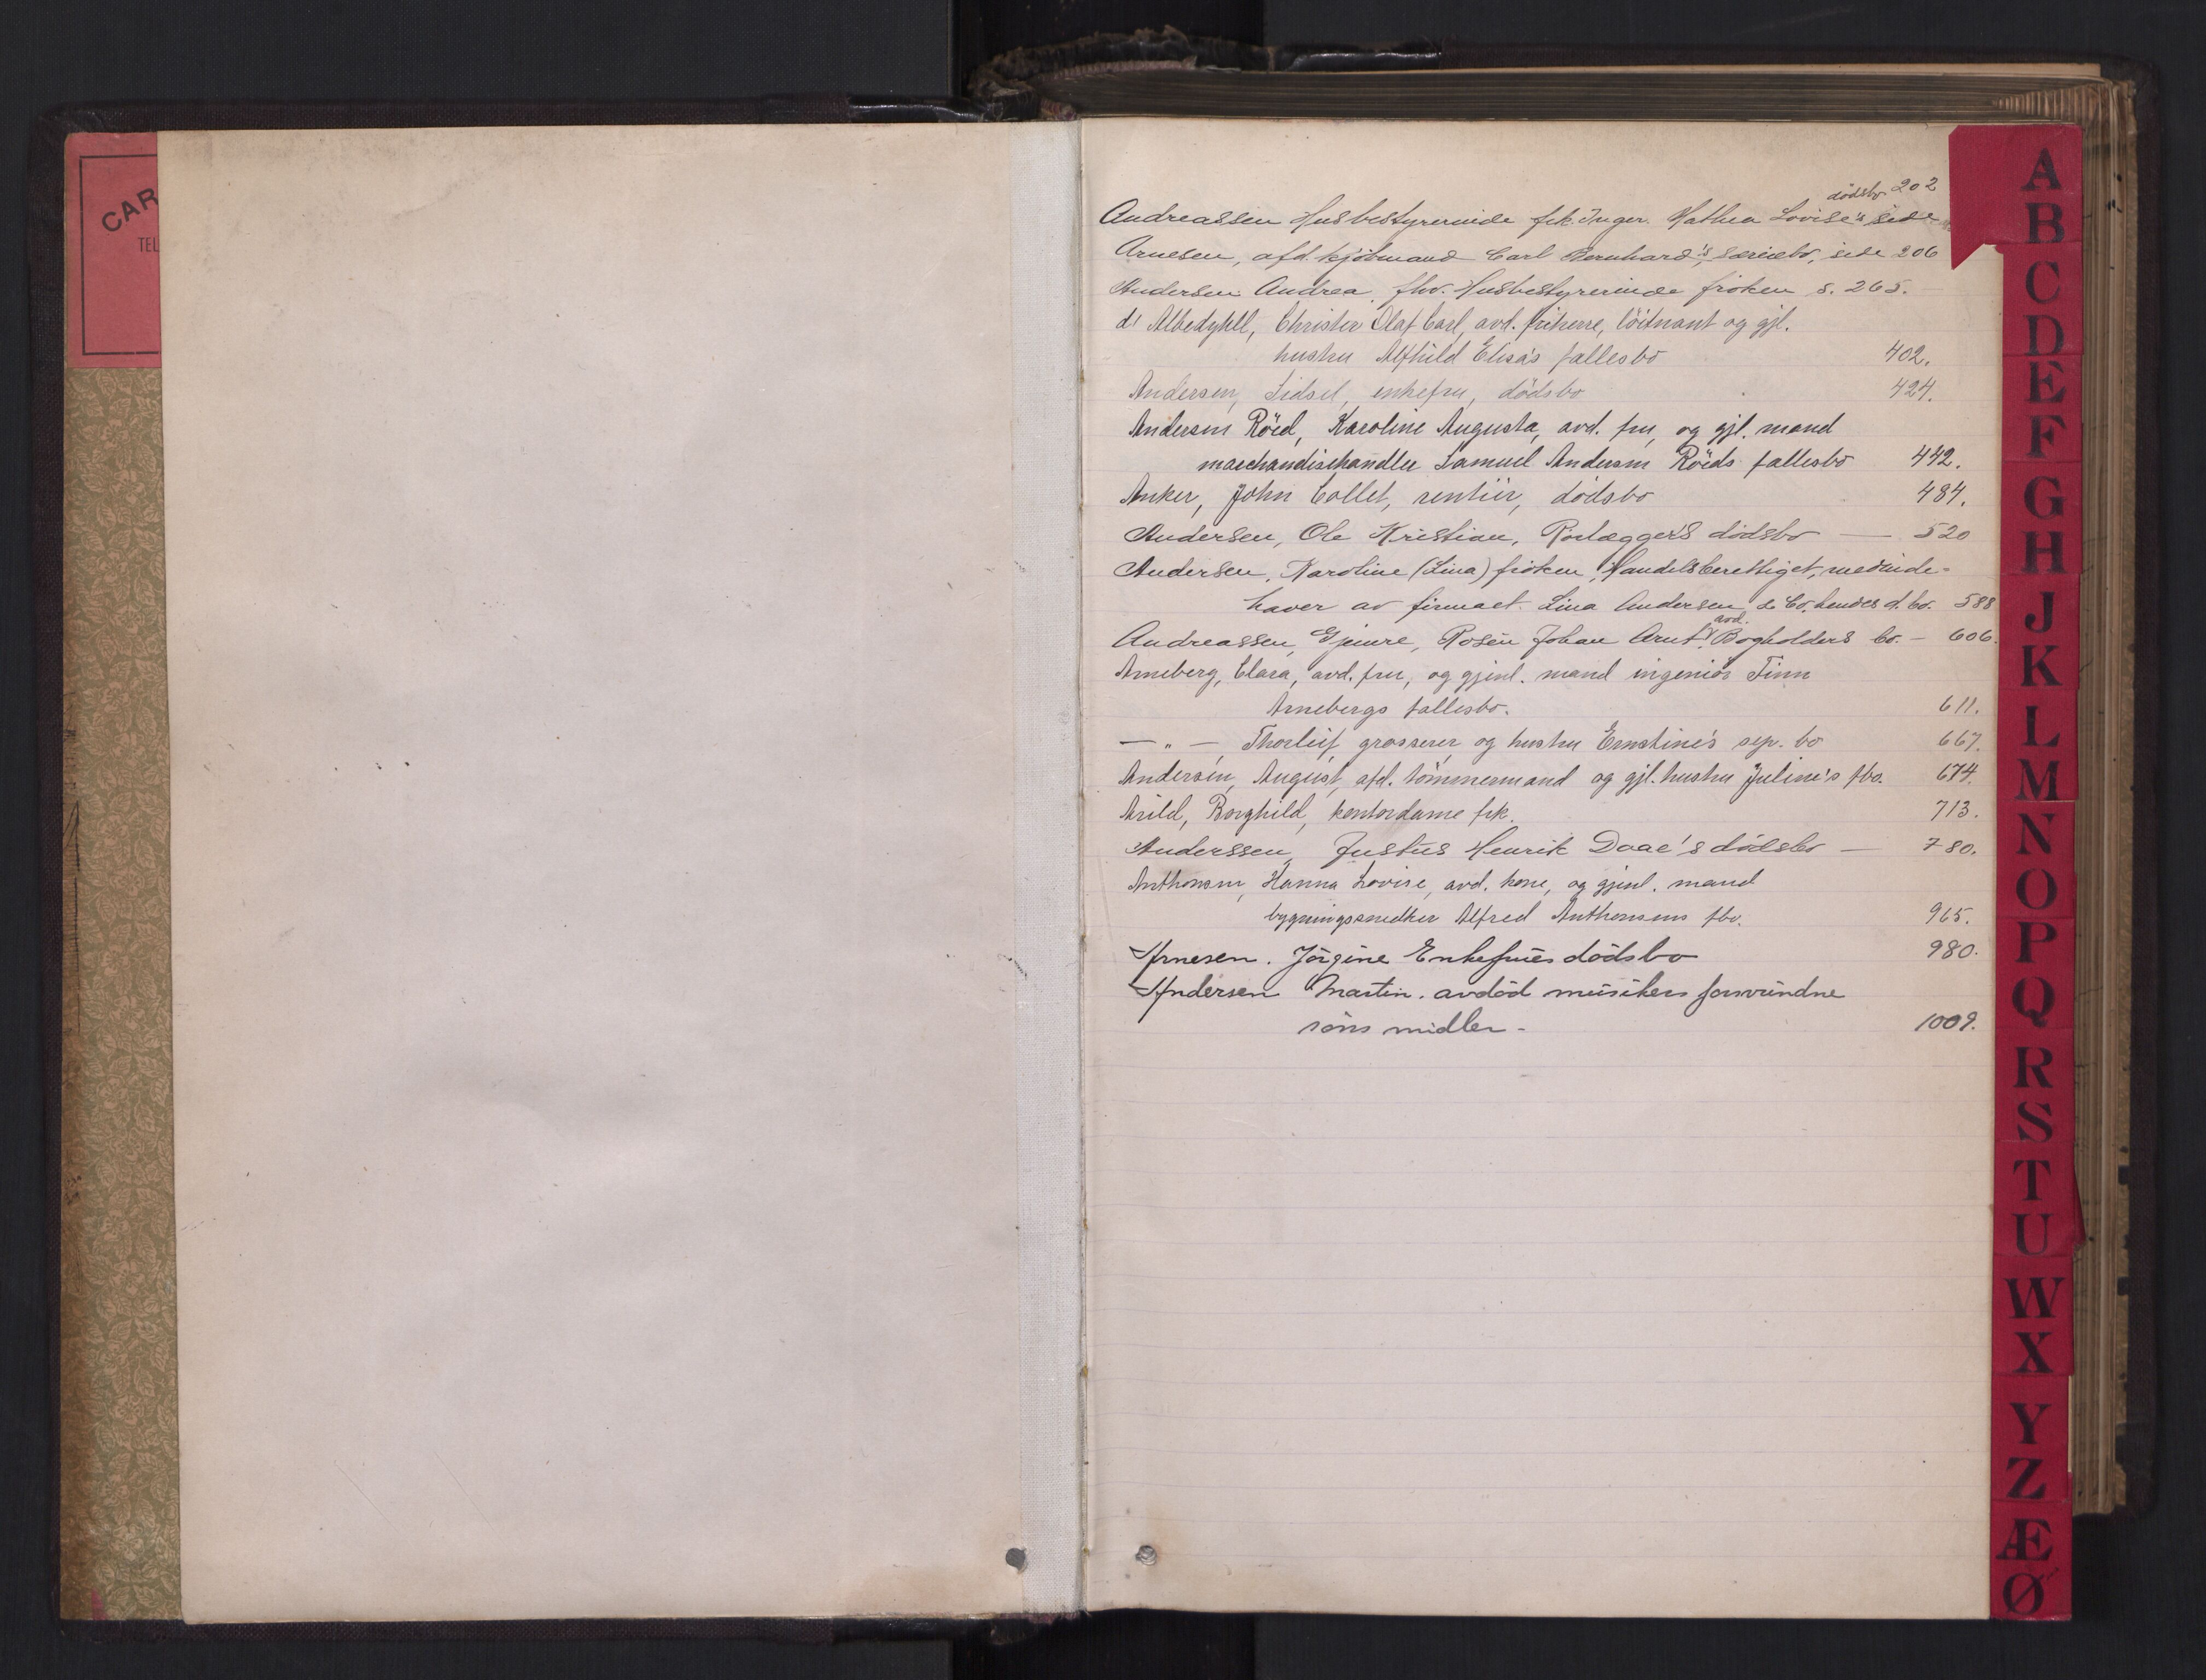 CAR
TEL
dödsbo 202
Andreassen Husbestyrerinde frk. Inger Mathea Lovise's side
Arnesen, afd. kjöbmand Carl Bernhard's, særiebo, side 206
Andersen Andrea, fhv. Husbestyrerinde fröken s. 265.
d' Albedyhll, Christer Olaf Carl, avd. friherre, löitnant og gjl.
hustru Alfhild Elisa's fællesbo 402.
Andersen, Sidsel, enkefru, dödsbo 424.
Andersen Röed, Karoline Augusta, avd. fru, og gjl. mand
marchandisehandler Samuel Andersen Röeds fællesbo 442.
Anker, John Collet, rentiér, dödsbo 484.
Andersen, Ole Kristian, Rörlæggers dödsbo — 520
Andersen, Karoline (Lina) fröken, Handelsberettiget, medinde-
haver av firmaet Lina Andersen & Co. hendes d. bo. 588
avd.
Andreassen, Gjemre, Rosén Johan Arnt, Bogholders bo. — 606.
Arneberg, Clara, avd. fru, og gjenl. mand ingeniör Finn
Arnebergs fællesbo. 611.
— „ — Thorleif, grosserer og hustru Ernstine's sep. bo 667.
Andersen, August, afd. tömmermand og gjl. hustru Juline's fbo. 674.
Arild, Borghild, kontordame frk. 713.
Anderssen, Justus Henrik Daae's dödsbo — 780.
Anthonsen, Hanna Lovise, avd. kone, og gjenl. mand
bygningssnedker Alfred Anthonsens fbo. 965.
Arnesen. Jörgine Enkefrues dödsbo 980.
Andersen Martin. avdöd musikers forsvundne
söns midler - 1009.
A
B
C
D
E
F
G
H
J
K
L
M
N
O
P
Q
R
S
T
U
W
X
Y
Z
Æ
Ø